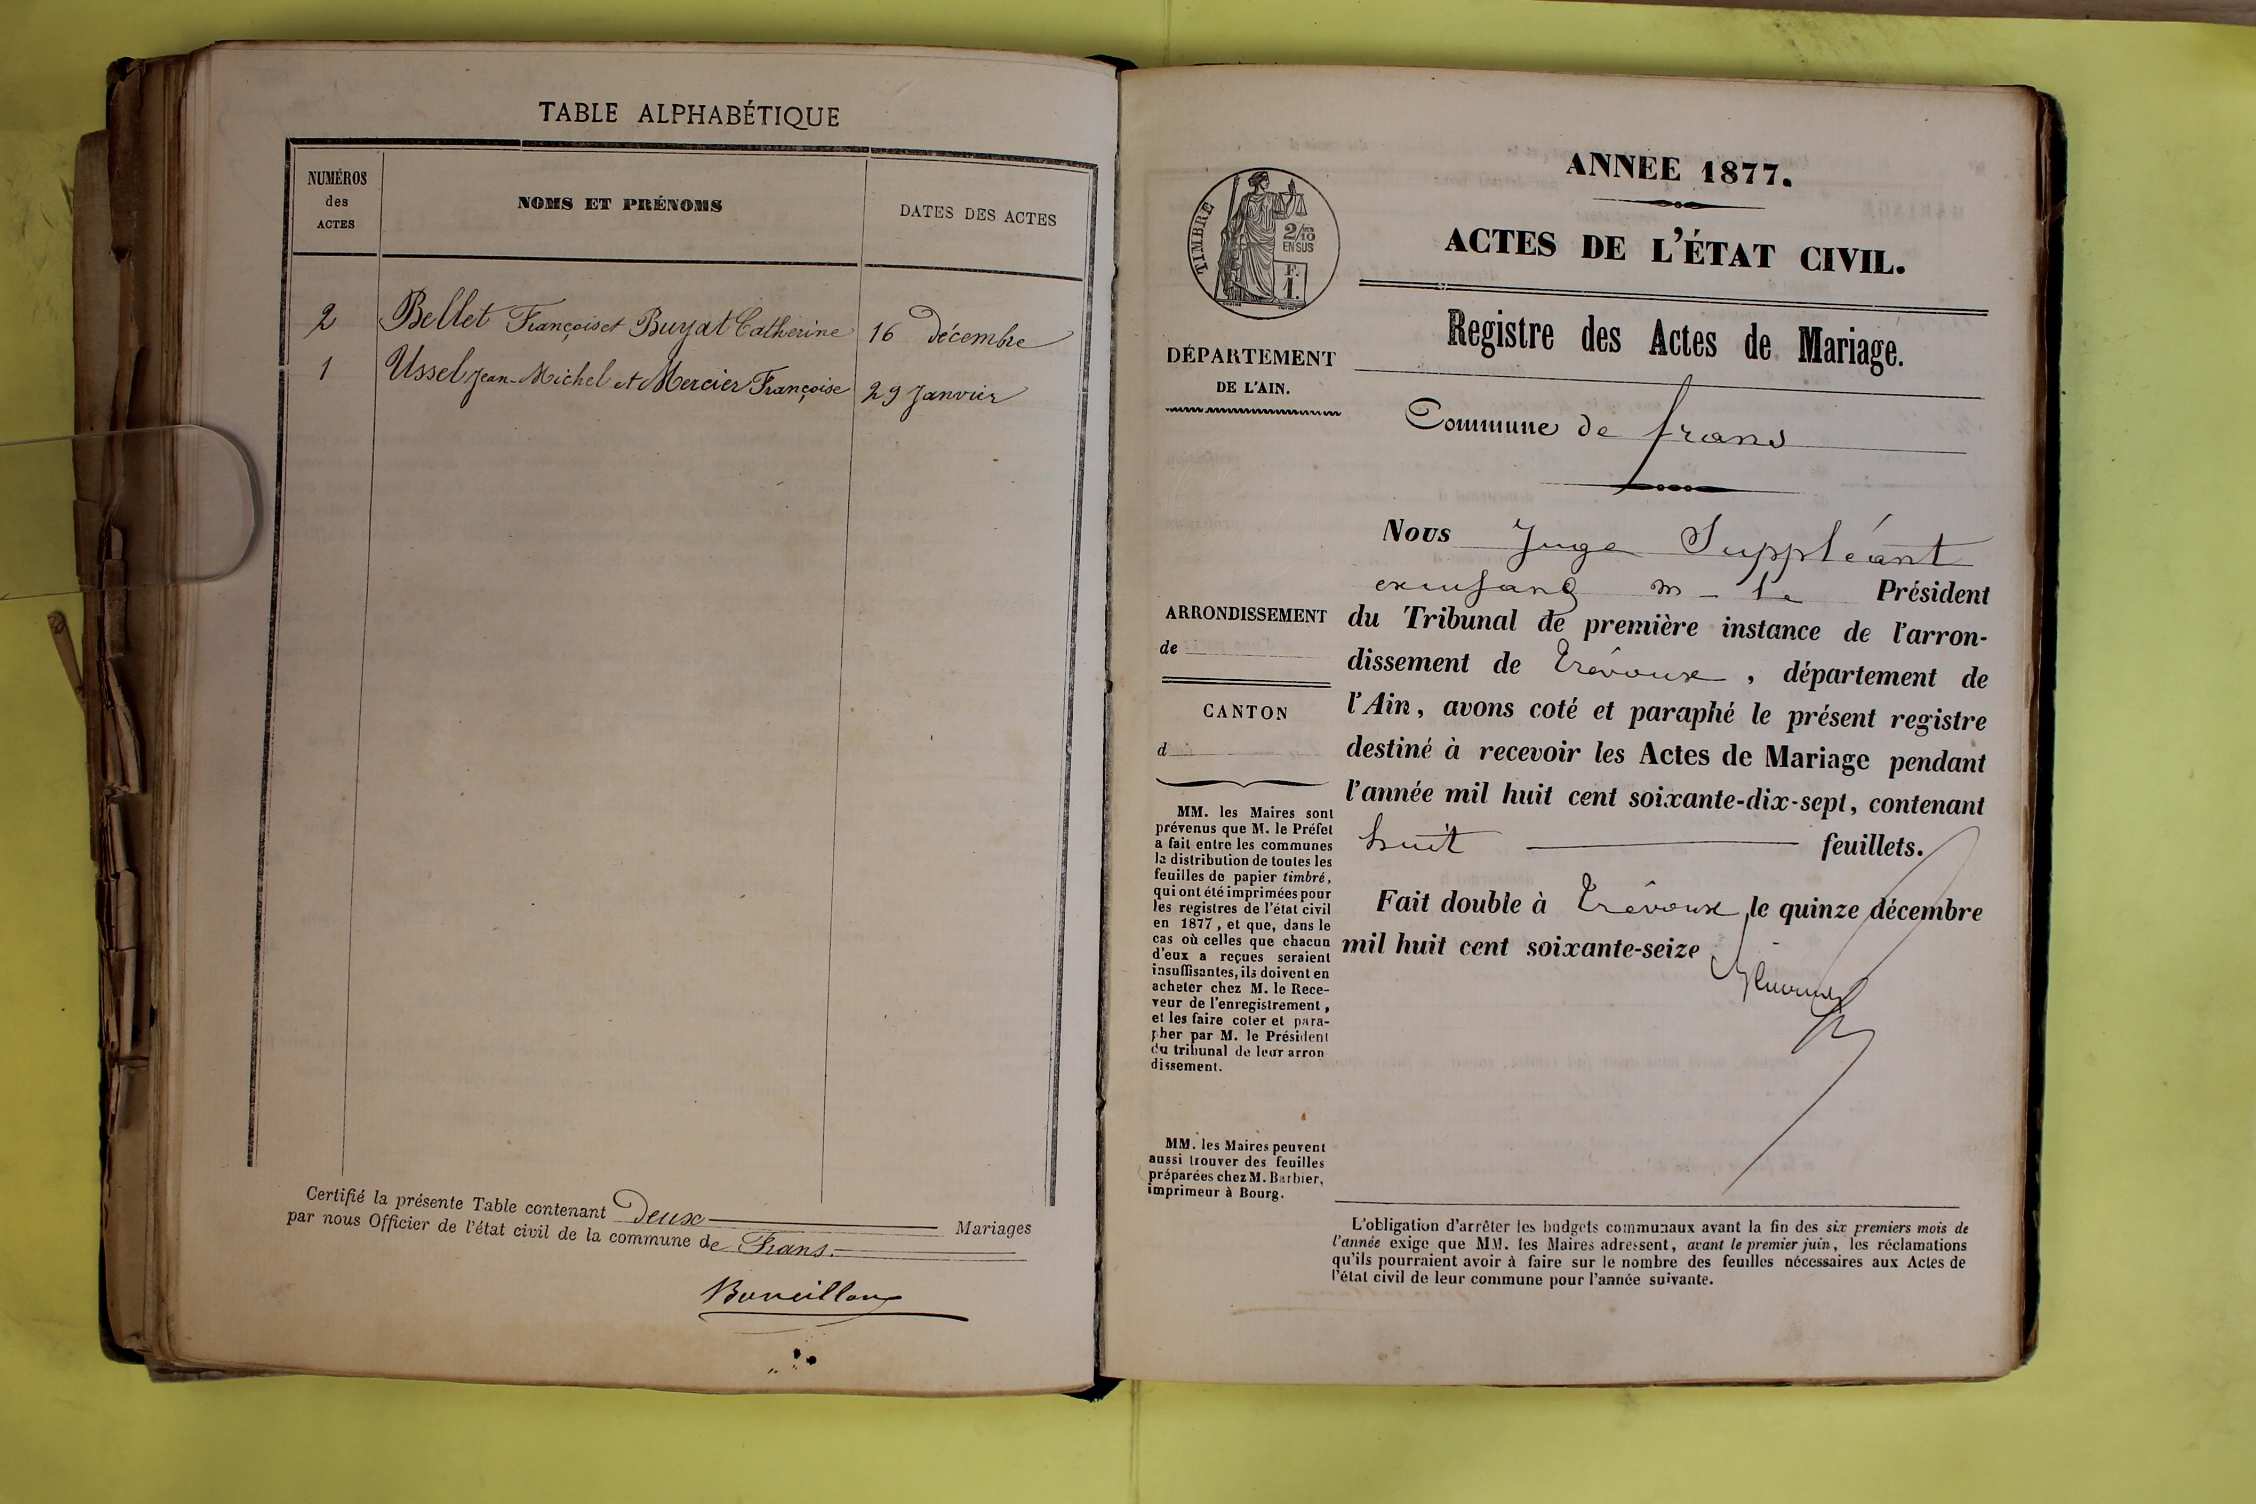 TABLE ALPHABÉTIQUE
NUMÉROS
des
ACTES
NOMS ET PRÉNOMS
DATES DES ACTES
2 Bellet François et Buyat Catherine 16 décembre
1 Ussel Jean-Michel et Mercier Françoise 29 Janvier
Certifié la présente Table contenant Deux Mariages
par nous Officier de l'état civil de la commune de Frans.
ANNEE 1877.
ACTES DE L'ÉTAT CIVIL.
TIMBRE
2/10
EN SUS
F.
1.
Registre des Actes de Mariage.
DÉPARTEMENT
DE L'AIN.
Commune de frans
Nous Juge Suppléant
m - le Président
du Tribunal de première instance de l'arron-
dissement de Trévoux, département de
l'Ain, avons coté et paraphé le présent registre
destiné à recevoir les Actes de Mariage pendant
l'année mil huit cent soixante-dix-sept, contenant
huit feuillets.
Fait double à Trévoux, le quinze décembre
mil huit cent soixante-seize
ARRONDISSEMENT
de
CANTON
d
MM. les Maires sont
prévenus que M. le Préfet
a fait entre les communes
la distribution de toutes les
feuilles de papier timbré,
qui ont été imprimées pour
les registres de l'état civil
en 1877, et que, dans le
cas où celles que chacun
d'eux a reçues seraient
insuffisantes, ils doivent en
acheter chez M. le Rece-
veur de l'enregistrement,
et les faire coter et para-
pher par M. le Président
du tribunal de leur arron
dissement.
MM. les Maires peuvent
aussi trouver des feuilles
préparées chez M. Barbier,
imprimeur à Bourg.
L'obligation d'arrêter les budgets communaux avant la fin des six premiers mois de
l'année exige que MM. les Maires adressent, avant le premier juin, les réclamations
qu'ils pourraient avoir à faire sur le nombre des feuilles nécessaires aux Actes de
l'état civil de leur commune pour l'année suivante.